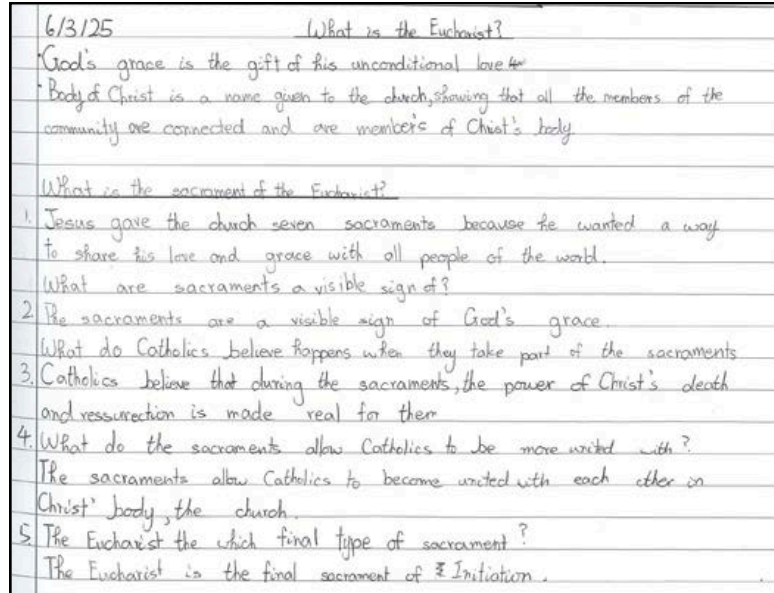 6/3/25 What is the Eucharist?
·God's grace is the gift of his unconditional love
·Body of Christ is a name given to the church, showing that all the members of the
community are connected and are members of Christ's body
What is the sacrament of the Eucharist?
1. Jesus gave the church seven sacraments because he wanted a way
to share his love and grace with all people of the world.
What are sacraments a visible sign of?
2 The sacraments are a visible sign of God's grace.
What do Catholics believe happens when they take part of the sacraments
3. Catholics believe that during the sacraments, the power of Christ's death
and ressurection is made real for them
4. What do the sacraments allow Catholics to be more united with?
The sacraments allow Catholics to become united with each other in
Christ' body, the church.
5. The Eucharist the which final type of sacrament?
The Eucharist is the final sacrament of Initiation.